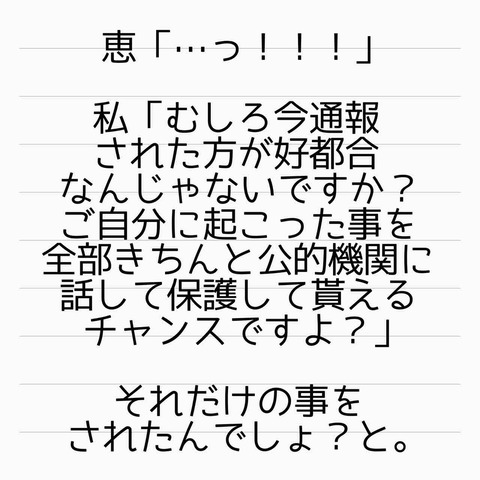 恵「…っ！！！」
私「むしろ今通報
された方が好都合
なんじゃないですか？
ご自分に起こった事を
全部きちんと公的機関に
話して保護して貰える
チャンスですよ？」
それだけの事を
されたんでしょ？と。